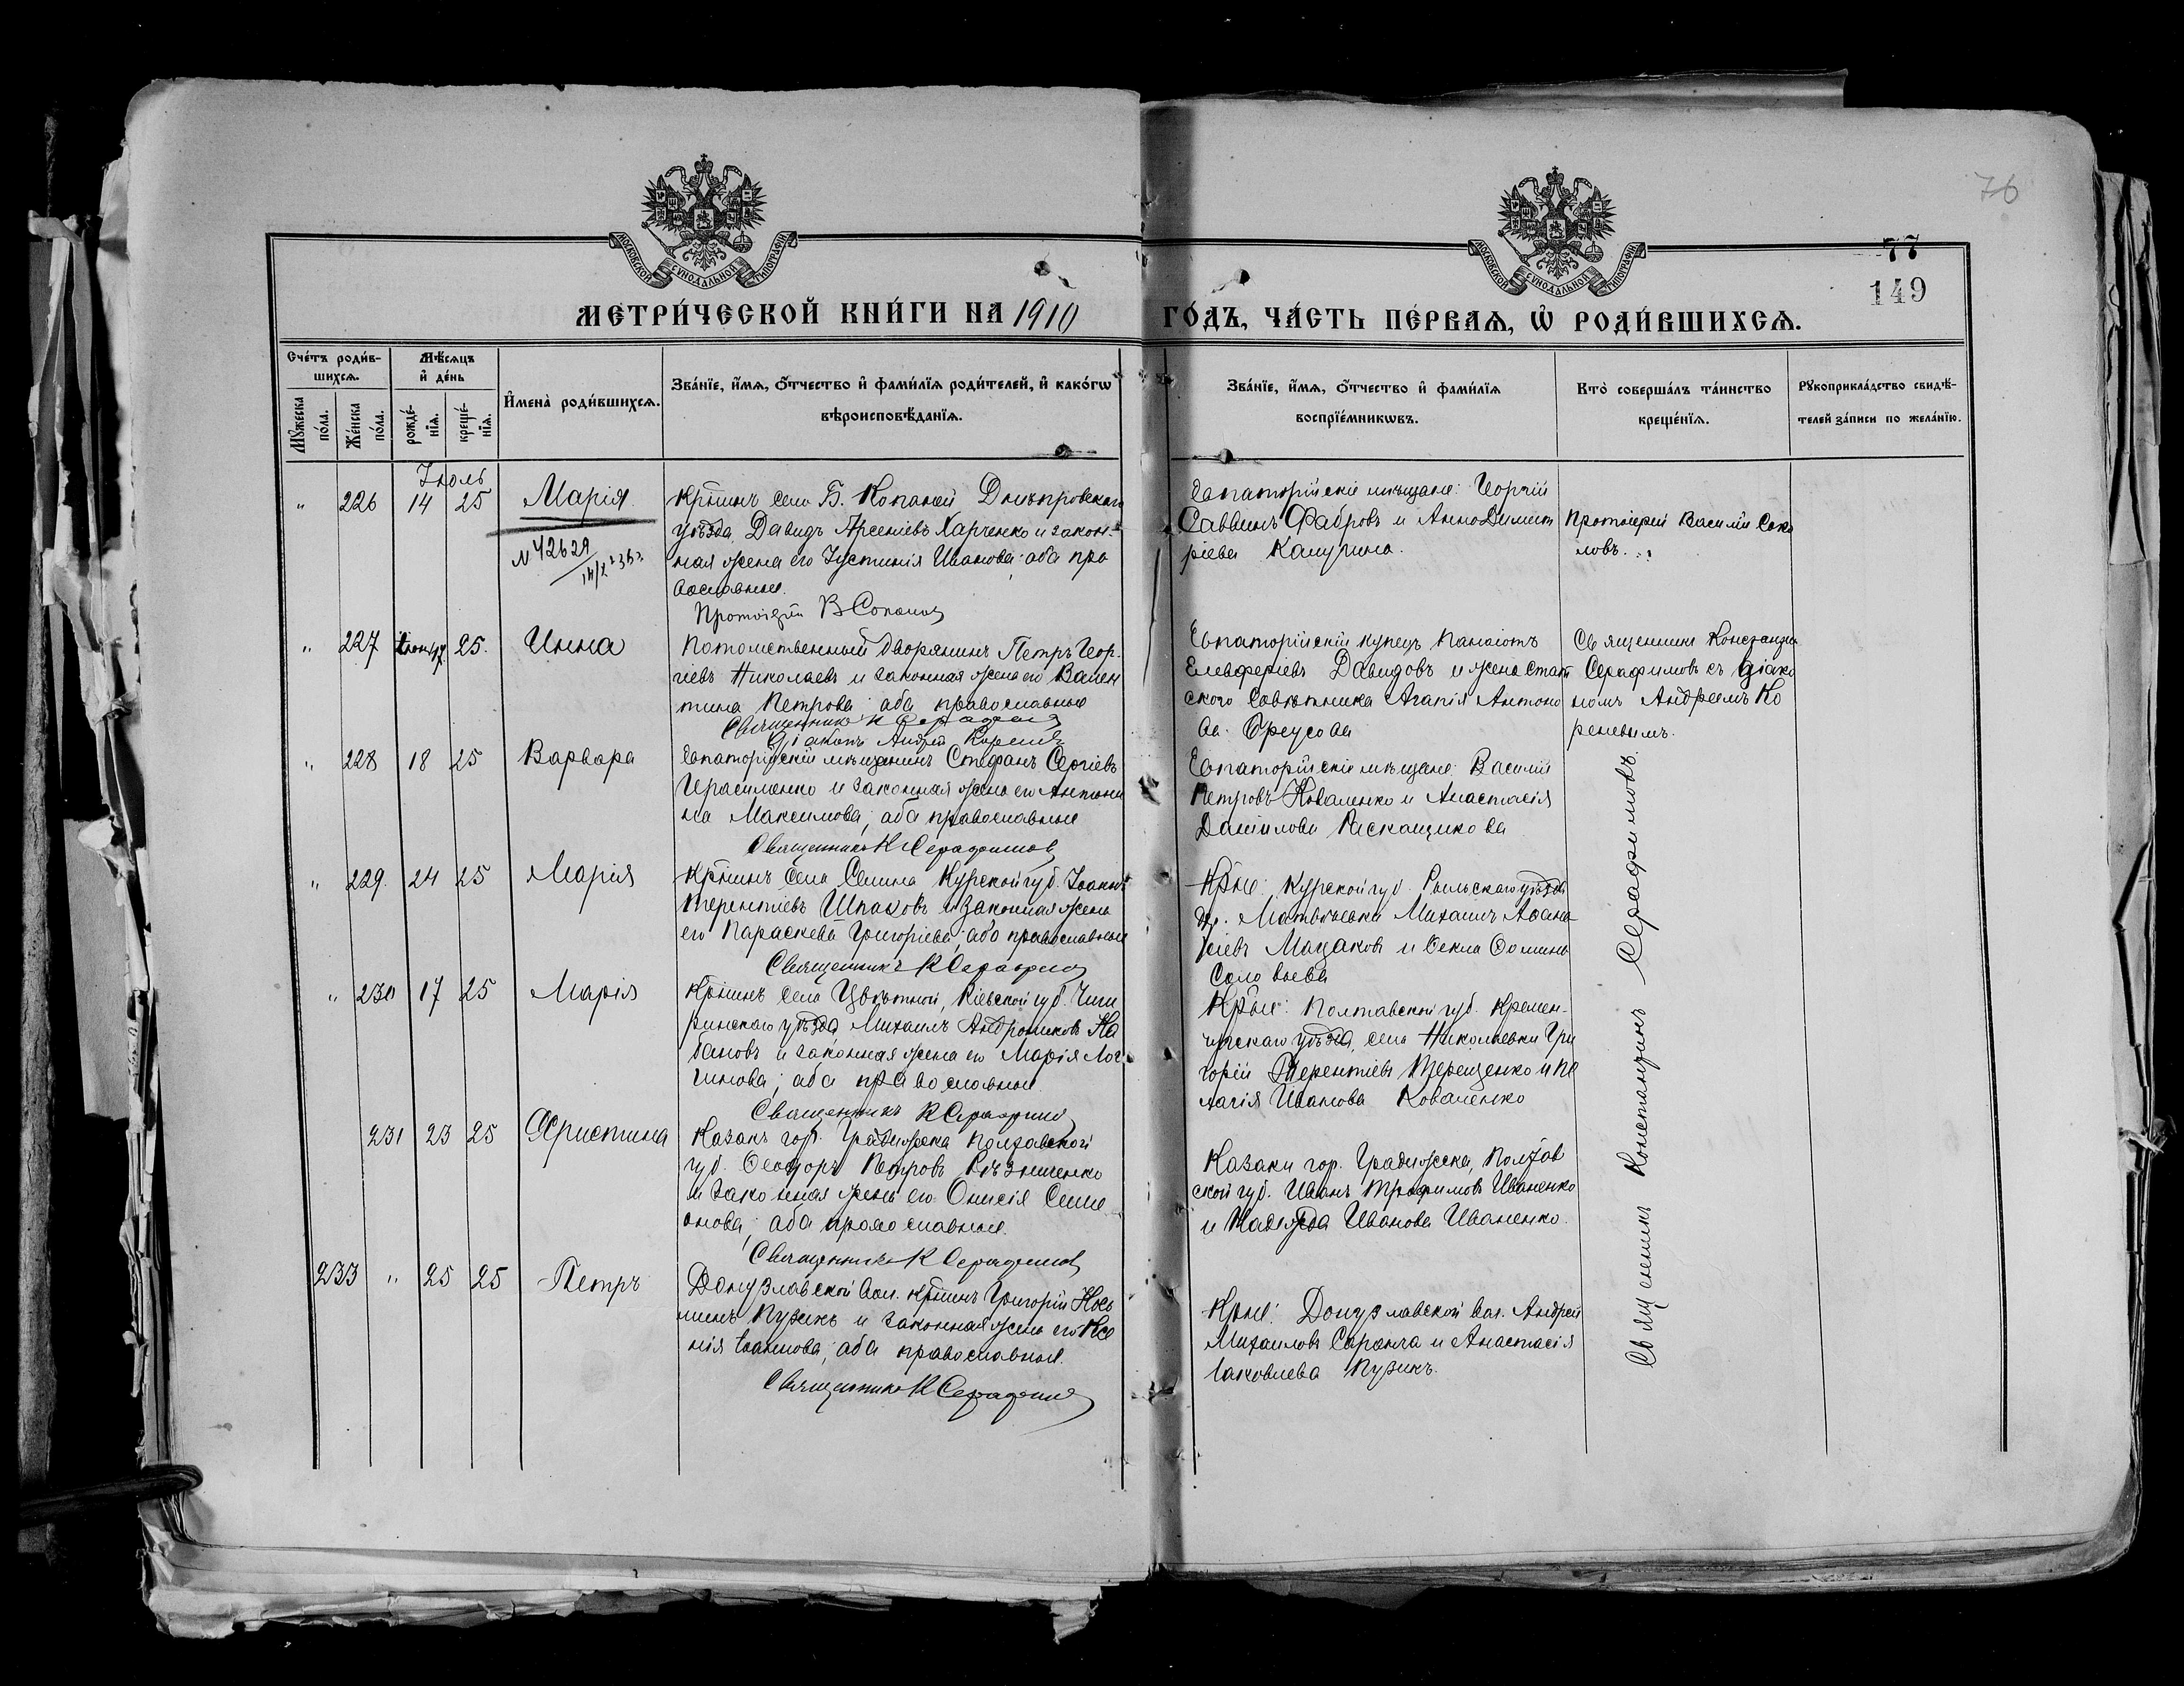 76
77
149
МОСКОВСКОЙ СѴНОДАЛЬНОЙ ТИПОГРАФІИ
МОСКОВСКОЙ СѴНОДАЛЬНОЙ ТИПОГРАФІИ
МЕТРИ́ЧЕСКОЙ КНИ́ГИ НА 1910 ГО́ДЪ, ЧА́СТЬ ПЕ́РВАѦ, Ѡ҆ РОДИ́ВШИХСѦ.
Сче́тъ роди́в-
шихсѧ.
Мꙋ́жеска по́ла.
Же́нска по́ла.
Мѣ́сѧцъ
и҆ де́нь
рожде́-нїѧ.
креще́-нїѧ.
И҆мена̀ роди́вшихсѧ.
Зва́нїе, и҆́мѧ, ѻ҆́тчество и҆ фами́лїѧ роди́телей, и҆ како́гѡ
вѣроисповѣ́данїѧ.
Зва́нїе, и҆́мѧ, ѻ҆́тчество и҆ фами́лїѧ
воспрїе́мникѡвъ.
Кто̀ соверша́лъ та́инство
креще́нїѧ.
Рꙋкоприкла́дство свидѣ́-
телей за́писи по жела́нїю.
Іюль
" 226 14 25 Марія
N 42629
Крѣтинъ села Б. Копаней Днѣпровскаго
уѣзда, Давидъ Арсеніевъ Харченко и закон-
ная жена его Іустинія Иванова; оба пра
вославные.
Протоіерей В Соколов
Евпаторійскіе мѣщане: Георгій
Саввинъ Фабровъ и Анна Димит
ріева Качурина.
Протоіерей Василій Соко
ловъ.
" 227 25. Инна
Потомственный дворянинъ Петръ Геор
гіевъ Николаевъ и законная жена его Вален
тина Петрова; оба православные
Священникъ К Серафимов
Діаконъ Андрей Корене
Евпаторійскій купецъ Панаіотъ
Елевферіевъ Давидовъ и жена Стат
скаго Совѣтника Агапія Антоно
ва Фреусова
Священникъ Константин
Серафимовъ съ діако
номъ Андреемъ Ко
реневымъ.
" 228 18 25 Варвара
Евпаторійскій мѣщанинъ Стефанъ Сергіевъ
Герасименко и законная жена его Антони
на Максимова; оба православные
Священникъ К Серафимов
Евпаторійскіе мѣщане: Василій
Петровъ Коваленко и Анастасія
Даніилова Раскащикова
" 229. 24 25 Марія
Крѣтинъ села Семина Курской губ. Іоаннъ
Терентіевъ Шпаковъ и законная жена
его Параскева Григоріева; оба православные
Священникъ К Серафимов
Крѣне: Курской губ. Рыльскаго уѣзда
др. Матвѣевки Михаилъ Аѳана
сіевъ Мацаковъ и Ѳекла Ѳомина
Соловьева
" 230 17 25 Марія
Крѣтинъ села Цвѣтной, Кіевской губ. Чиги
ринскаго уѣзда Михаилъ Андрониковъ Ка
бановъ и законная жена его Марія Лог
гинова; оба православные
Священникъ К Серафимов
Крѣне: Полтавской губ. Кремен-
чугскаго уѣзда, села Николаевки Гри
горій Терентіевъ Терещенко и Пе
лагія Иванова Коваленко
231 23 25 Христина
Казакъ гор. Градижска Полтавской
губ. Ѳеодоръ Петровъ Рѣзниченко
и законная жена его Онисія Симе
онова; оба православные.
Священникъ К Серафимов
Казаки гор. Градижска, Полтав
ской губ. Иванъ Трофимовъ Иваненко
и Надежда Иванова Иваненко.
233 " 25 25 Петръ
Донузлавской вол. крѣтинъ Григорій Кось
минъ Пузикъ и законная жена его Ксе
нія Іоаннова; оба православные.
Священникъ К Серафимов
Крѣне: Донузлавской вол. Андрей
Михаиловъ Саранча и Анастасія
Іаковлева Пузикъ.
Священникъ Константинъ Серафимовъ.